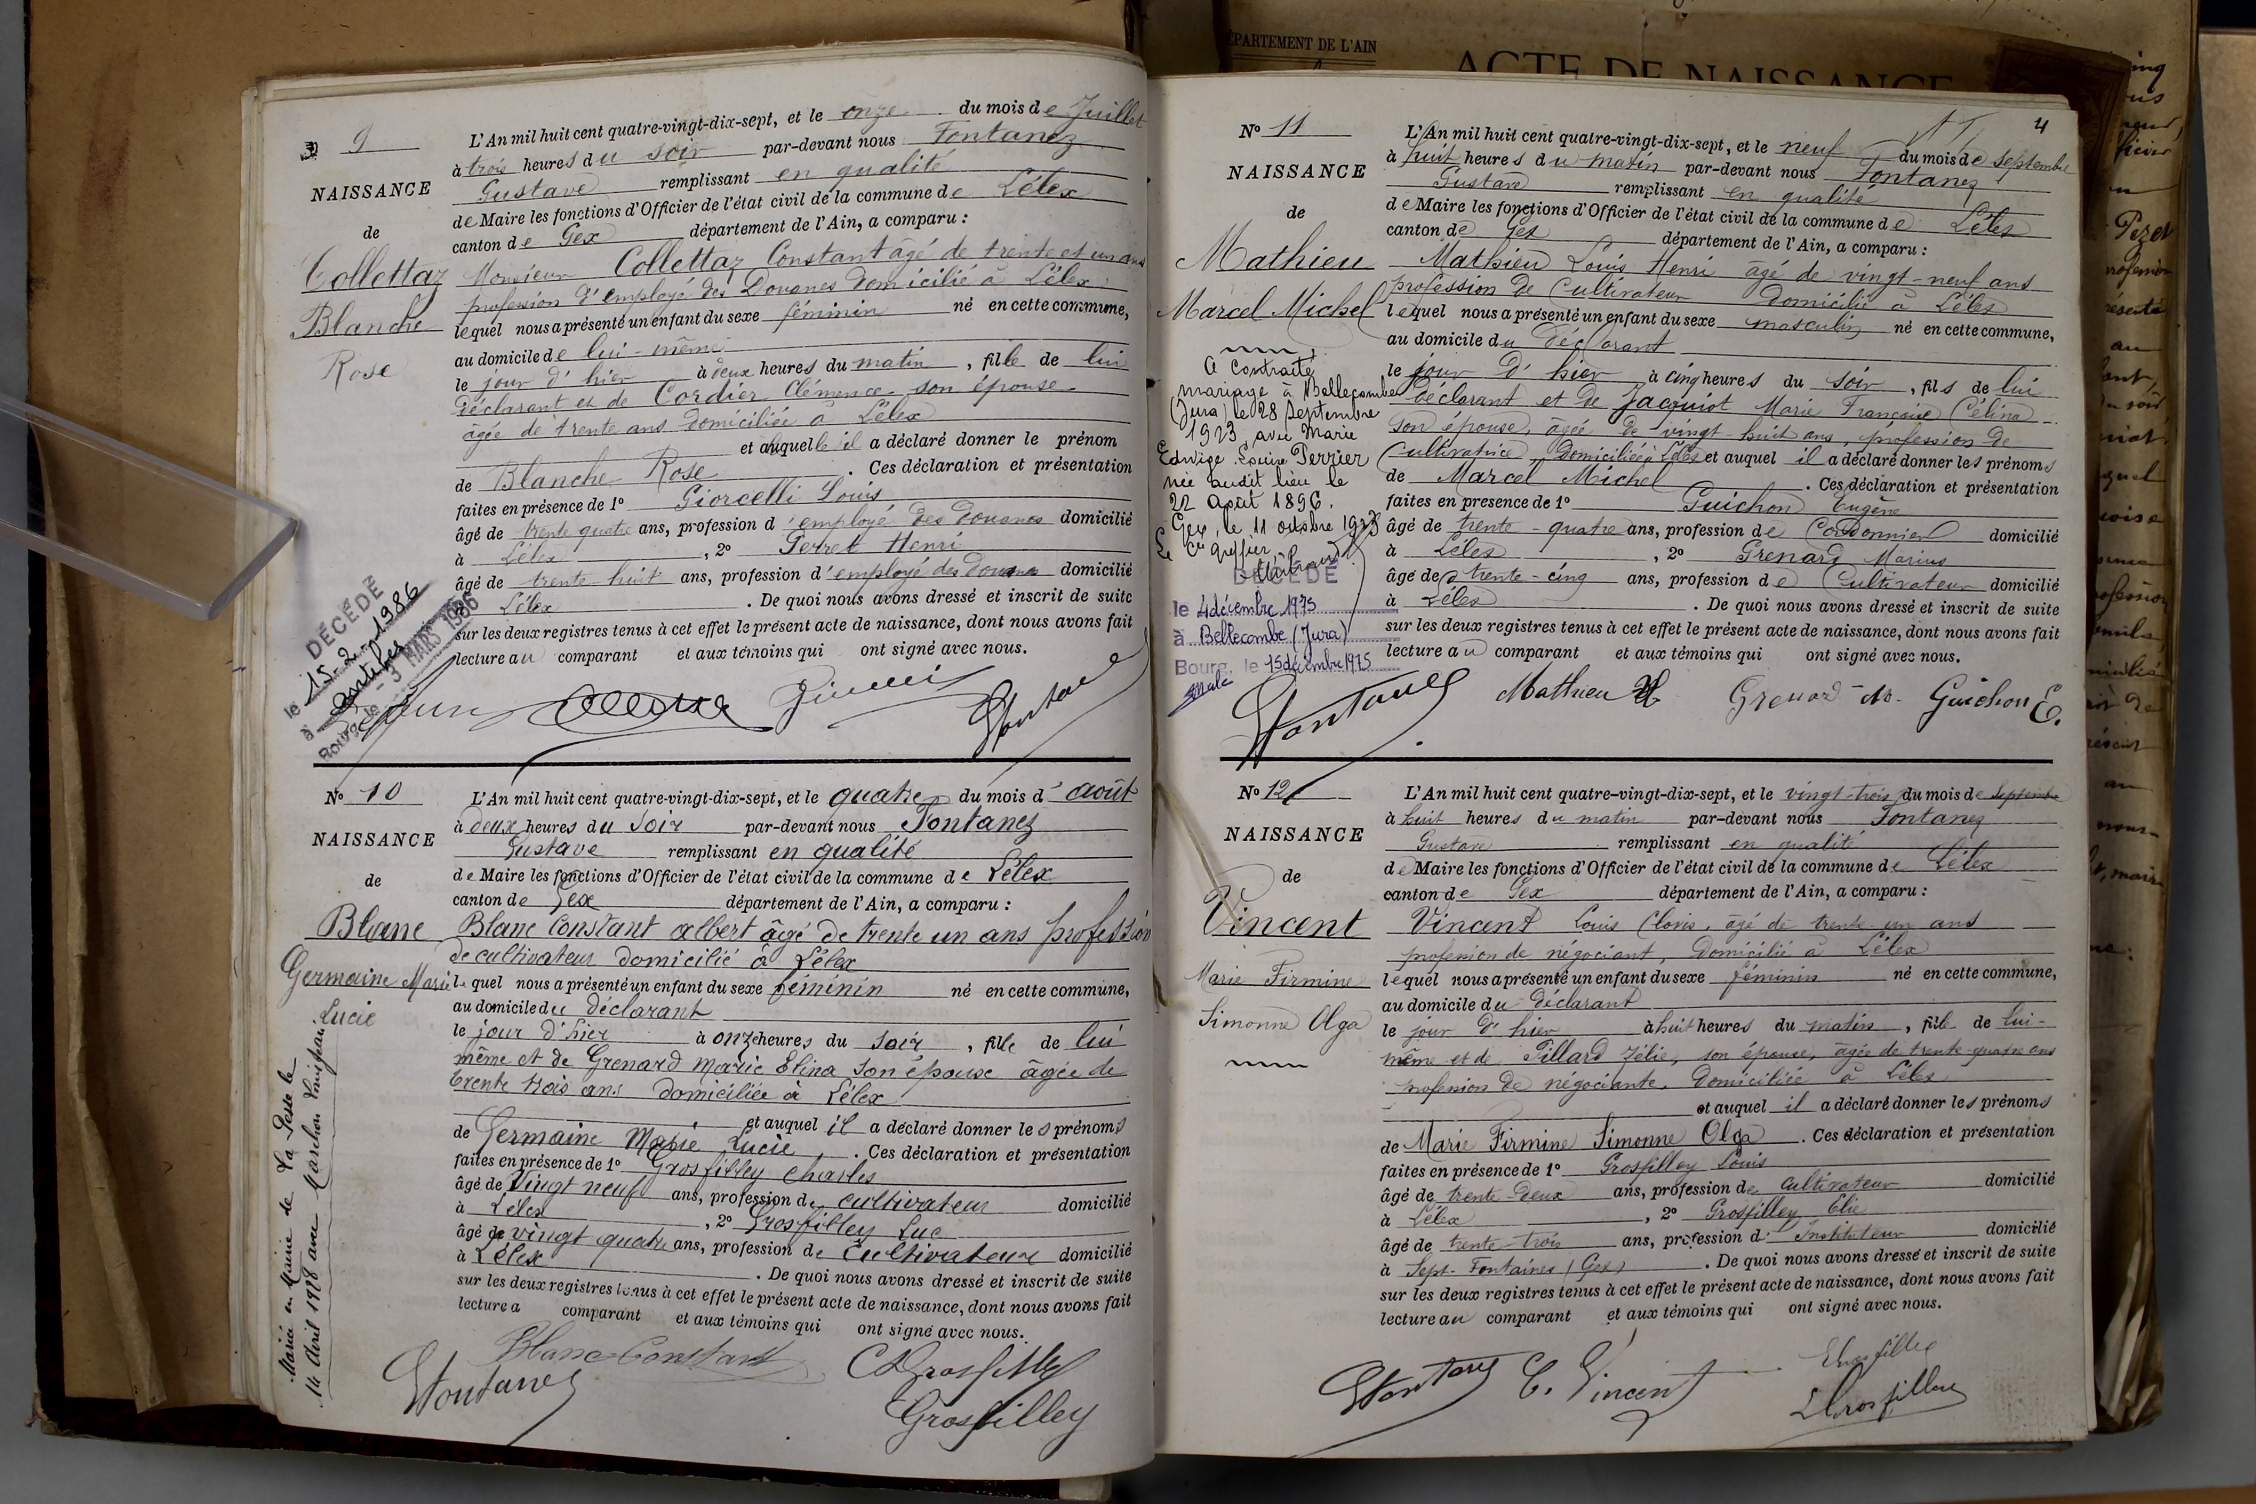 N° 9
NAISSANCE
de
Collettaz
Blanche
Rose
L'An mil huit cent quatre-vingt-dix-sept, et le onze du mois de Juillet
à trois heures du soir par-devant nous Fontanez
Gustave remplissant en qualité
de Maire les fonctions d'Officier de l'état civil de la commune de Lélex
canton de Gex département de l'Ain, a comparu :
Monsieur Collettaz Constant âgé de trente et un ans
profession d'employé des Douanes domicilié à Lélex
lequel nous a présenté un enfant du sexe féminin né en cette commune,
au domicile de lui-même
le jour d'hier à deux heures du matin, fille de lui
déclarant et de Cordier Clémence son épouse
âgée de trente ans domiciliée à Lélex
et auquel il a déclaré donner le prénom
de Blanche Rose. Ces déclaration et présentation
faites en présence de 1° Giorcelli Louis
âgé de trente quatre ans, profession d'employé des douanes domicilié
à Lélex, 2° Perret Henri
âgé de trente-huit ans, profession d'employé des douanes domicilié
à Lélex. De quoi nous avons dressé et inscrit de suite
sur les deux registres tenus à cet effet le présent acte de naissance, dont nous avons fait
lecture au comparant et aux témoins qui ont signé avec nous.
DÉCÉDÉ
le 15.2.1986
à Antibes
Bourg, le -3 MARS 1986
N° 10
NAISSANCE
de
Blanc
Germaine Marie
Lucie
Marié en Mairie de La
14 Avril 1918 avec Marchon
L'An mil huit cent quatre-vingt-dix-sept, et le quatre du mois d'août
à deux heures du Soir par-devant nous Fontanez
Gustave remplissant en qualité
de Maire les fonctions d'Officier de l'état civil de la commune de Lélex
canton de Gex département de l'Ain, a comparu :
Blanc Constant albert âgé de trente un ans profession
de cultivateur domicilié à Lélex
lequel nous a présenté un enfant du sexe féminin né en cette commune,
au domicile du déclarant
le jour d'hier à onze heures du soir, fille de lui
même et de Grenard Marie Elina son épouse âgée de
trente trois ans domiciliée à Lélex
et auquel il a déclaré donner les prénoms
de Germaine Marie Lucie. Ces déclaration et présentation
faites en présence de 1° Grosfilley Charles
âgé de Vingt neuf ans, profession de cultivateur domicilié
à Lélex, 2° Grosfilley Luc
âgé de vingt quatre ans, profession de Cultivateur domicilié
à Lélex. De quoi nous avons dressé et inscrit de suite
sur les deux registres tenus à cet effet le présent acte de naissance, dont nous avons fait
lecture a comparant et aux témoins qui ont signé avec nous.
Blanc Constant
GFontanez
C Grosfilley
Grosfilley
DÉPARTEMENT DE L'AIN
ACTE DE NAISSANCE
4
N° 11
NAISSANCE
de
Mathieu
Marcel Michel
A contracté
mariage à Bellecombe
(Jura) le 28 Septembre
1923, avec Marie
Edwige Louise Perrier
née audit lieu le
22 Août 1896.
Gex, le 11 octobre 1923
Le Cis Greffier,
DÉCÉDÉ
le 4 décembre 1975
à Bellecombe (Jura)
Bourg, le 15 décembre 1975
L'An mil huit cent quatre-vingt-dix-sept, et le neuf du mois de septembre
à huit heures du matin par-devant nous Fontanez
Gustave remplissant en qualité
de Maire les fonctions d'Officier de l'état civil de la commune de Lélex
canton de Gex département de l'Ain, a comparu :
Mathieu Louis Henri âgé de vingt-neuf ans
profession de Cultivateur domicilié à Lélex
lequel nous a présenté un enfant du sexe masculin né en cette commune,
au domicile du déclarant
le jour d'hier à cinq heures du soir, fils de lui
déclarant et de Jacquiot Marie Françoise Célina
son épouse, âgée de vingt-huit ans, profession de
Cultivatrice, domiciliée à Lélex et auquel il a déclaré donner les prénoms
de Marcel Michel. Ces déclaration et présentation
faites en présence de 1° Guichon Eugène
âgé de trente-quatre ans, profession de Cordonnier domicilié
à Lélex, 2° Grenard Marius
âgé de trente-cinq ans, profession de Cultivateur domicilié
à Lélex. De quoi nous avons dressé et inscrit de suite
sur les deux registres tenus à cet effet le présent acte de naissance, dont nous avons fait
lecture au comparant et aux témoins qui ont signé avec nous.
GFontanez Mathieu H Grenard M. Guichon E.
N° 12
NAISSANCE
de
Vincent
Marie Firmine
Simonne Olga
L'An mil huit cent quatre-vingt-dix-sept, et le vingt-trois du mois de Septembre
à huit heures du matin par-devant nous Fontanez
Gustave remplissant en qualité
de Maire les fonctions d'Officier de l'état civil de la commune de Lélex
canton de Gex département de l'Ain, a comparu :
Vincent Louis Clovis, âgé de trente-un ans
profession de négociant, domicilié à Lélex
lequel nous a présenté un enfant du sexe féminin né en cette commune,
au domicile du déclarant
le jour d'hier à huit heures du matin, fille de lui-
même et de Pillard Zélie, son épouse, âgée de trente-quatre ans
profession de négociante, domiciliée à Lélex
et auquel il a déclaré donner les prénoms
de Marie Firmine Simonne Olga. Ces déclaration et présentation
faites en présence de 1° Grosfilley Louis
âgé de trente-deux ans, profession de cultivateur domicilié
à Lélex, 2° Grosfilley Elie
âgé de trente-trois ans, profession d'Instituteur domicilié
à Sept-Fontaines (Gex). De quoi nous avons dressé et inscrit de suite
sur les deux registres tenus à cet effet le présent acte de naissance, dont nous avons fait
lecture au comparant et aux témoins qui ont signé avec nous.
GFontanez C. Vincent
E Grosfilley
L Grosfilley